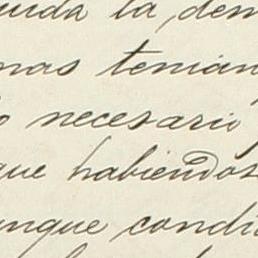 uida la dem
mas tenian
o necesario
que habiendos
unque condi